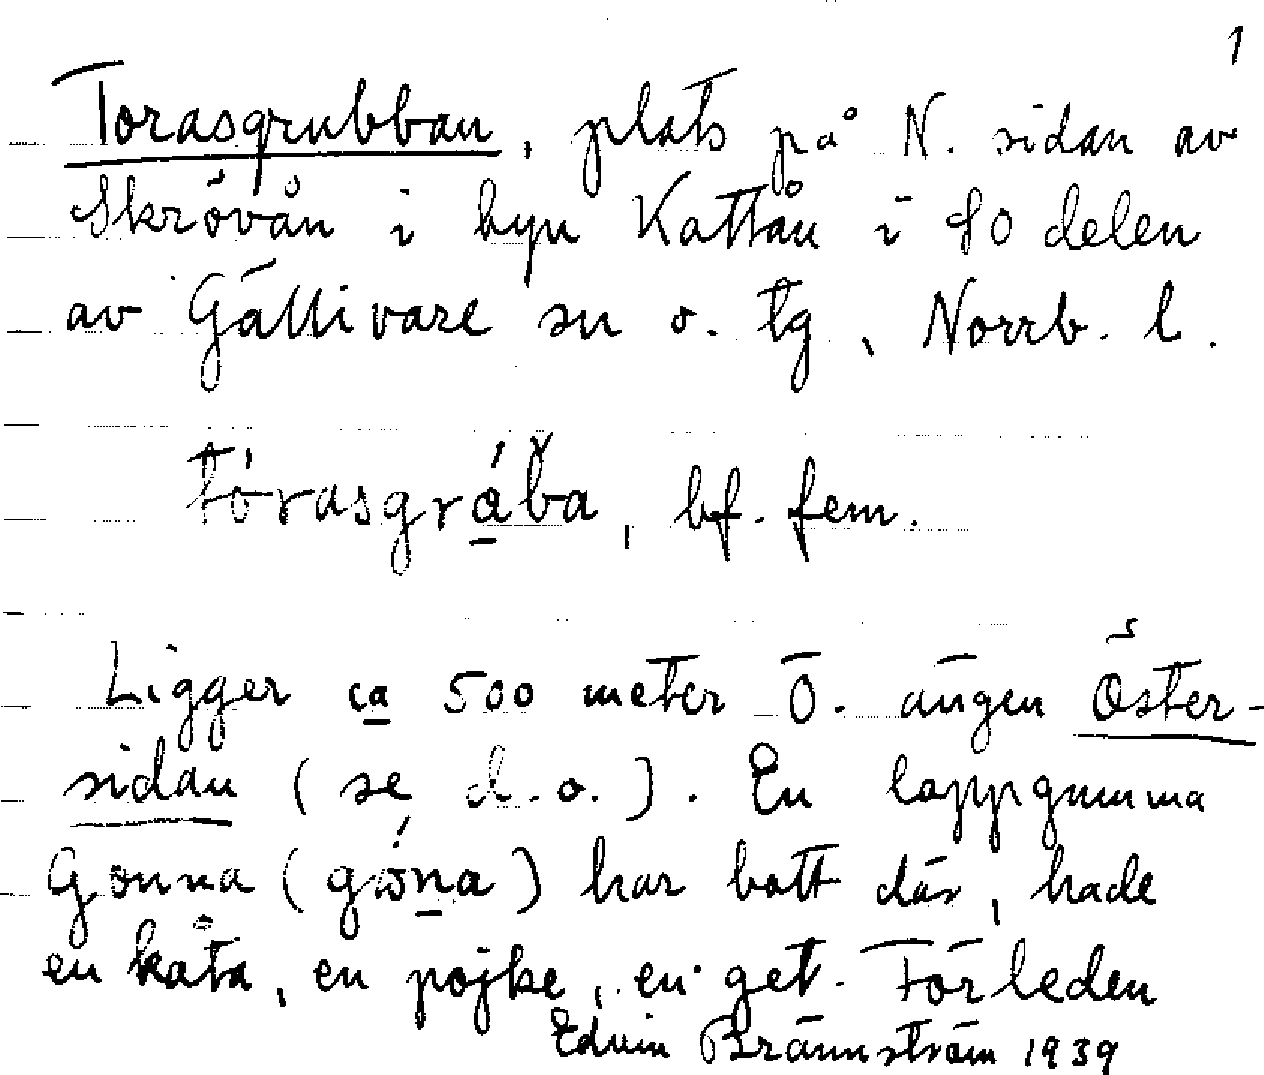 1
Torasgrubban, plats på N. sidan av
Skrövån i byn Kattån i SO delen
av Gällivare sn o. tg, Norrb. l.
bf. fem.
Ligger ca 500 meter Ö. ängen Öster-
sidan (se d. o.). En lappgumma
Gonna (                ) har bott där, hade
en kåta, en pojke, en get. Förleden
Edvin Brännström 1939